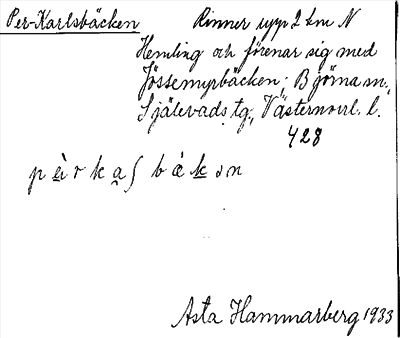 Per-Karlsbäcken Rinner upp 2 km N
Hemling och förenar sig med
Jössemyrbäcken; Björna sn.,
Själevads tg., Västernorrl. l.
428
pèrkaʃbækən
Asta Hammarberg 1933